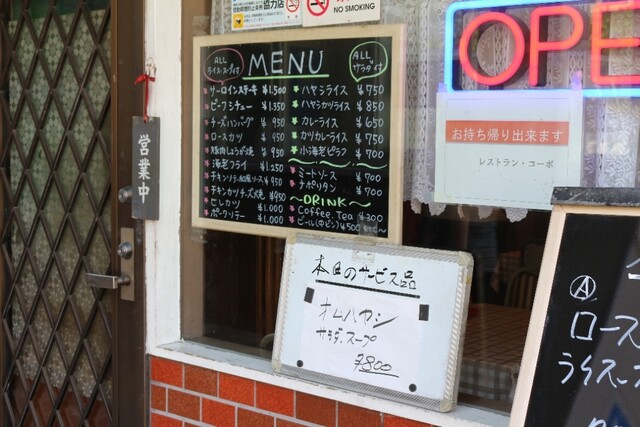 協力店
NO SMOKING
ALL
ライス・スープ付
MENU
ALL
サラダ付
サーロインステーキ ¥1,500
ビーフシチュー ¥1,350
チーズハンバーグ ¥950
ロースカツ ¥950
豚肉しょうが焼 ¥950
海老フライ ¥1,250
チキンソテー和風ソース ¥950
チキンカツチーズ焼 ¥950
ヒレカツ ¥1,000
ポークソテー ¥1,000
ハヤシライス ¥750
ハヤシカツライス ¥850
カレーライス ¥650
カツカレーライス ¥700
小海老ピラフ ¥700
ミートソース ¥700
ナポリタン ¥700
〜DRINK〜
Coffee. Tea ¥300
ビール(中ビン) ¥500
営業中
OPE
お持ち帰り出来ます
レストラン・コーポ
本日のサービス品
オムハヤシ
サラダ、スープ
¥800
Ⓐ
ロース
ライス